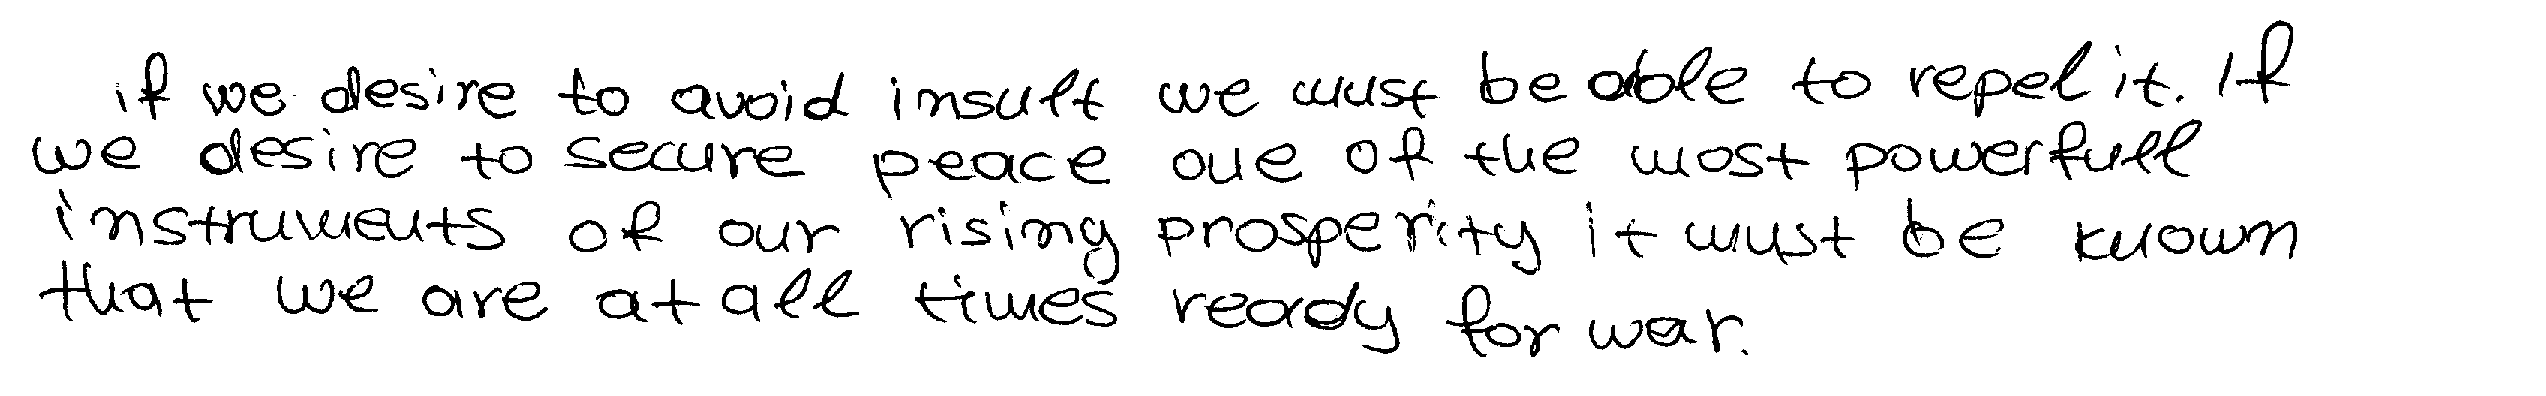 if we desire to avoid insult we must be able to repel it. If
we desire to secure peace one of the most powerfull
instruments of our rising prosperity it must be known
that we are at all times ready for war.